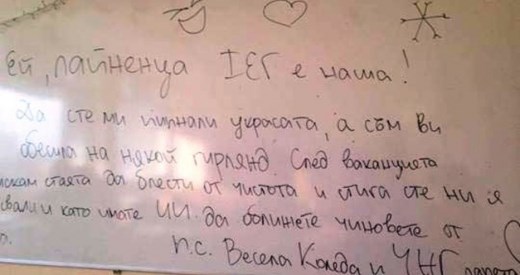 Ей, лайненца IЕГ е наша!
Да сте ми пипнали украсата, а съм ви
обесила на някой гирлянд. След ваканцията
искам стаята да блести от чистота и стига сте ни я
като имате ЧИ да болинете чиновете от
П.С. Весела Коледа и ЧНГ